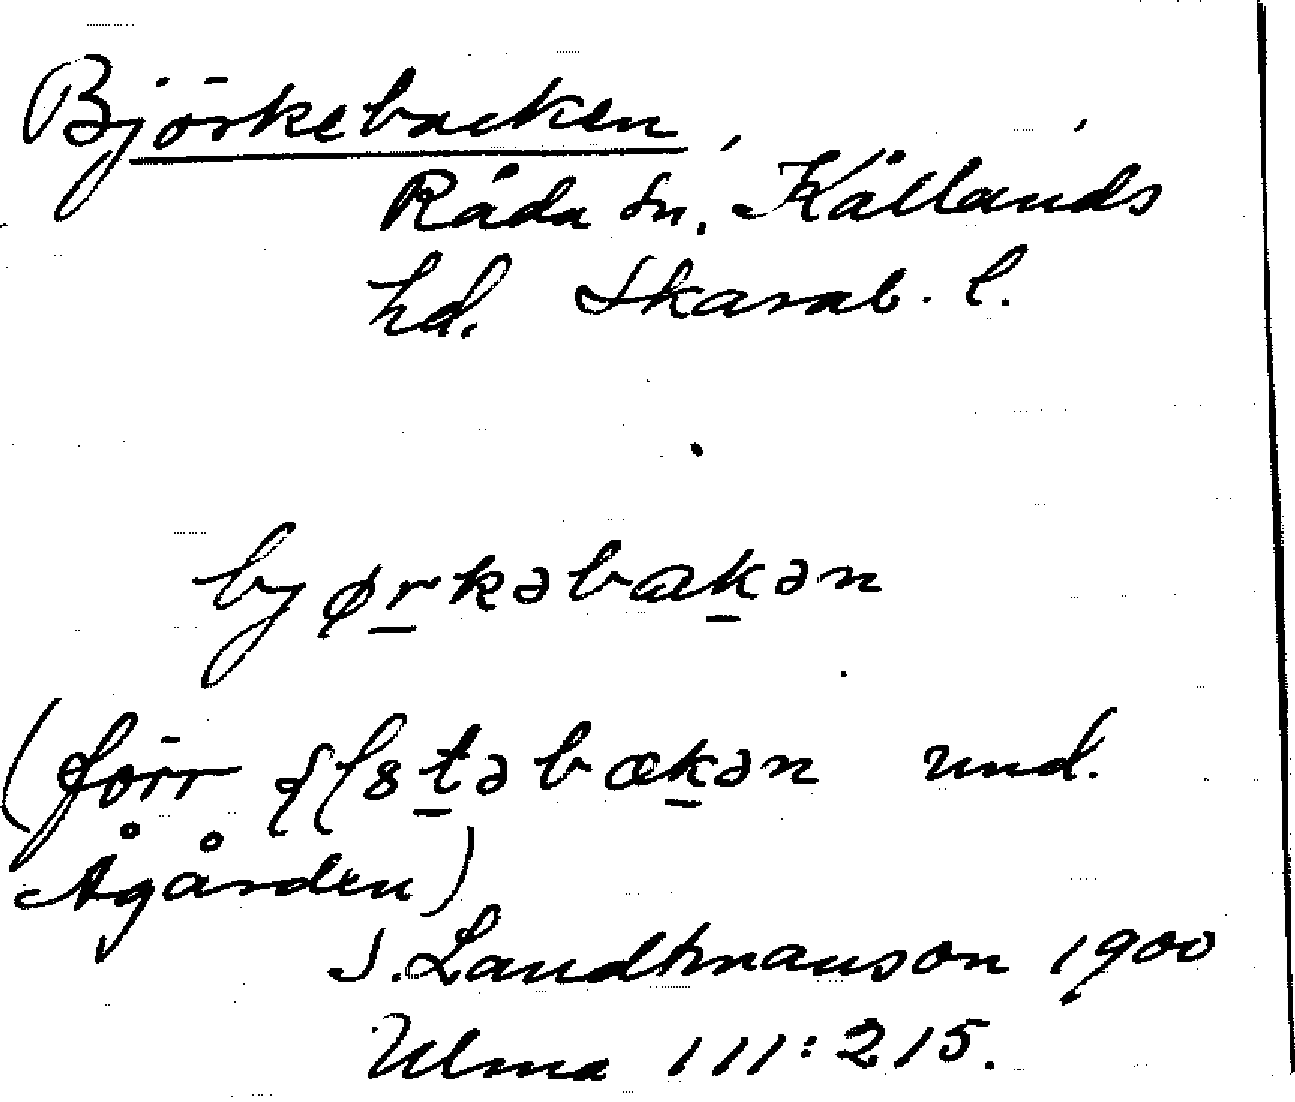 Björkebacken,
Råda sn, Kållands
hd. Skarab. l.
bjørkəbakən
(förr əfstəbakən und.
Ågården)
J. Landtmanson 1900
Ulma 111:215.